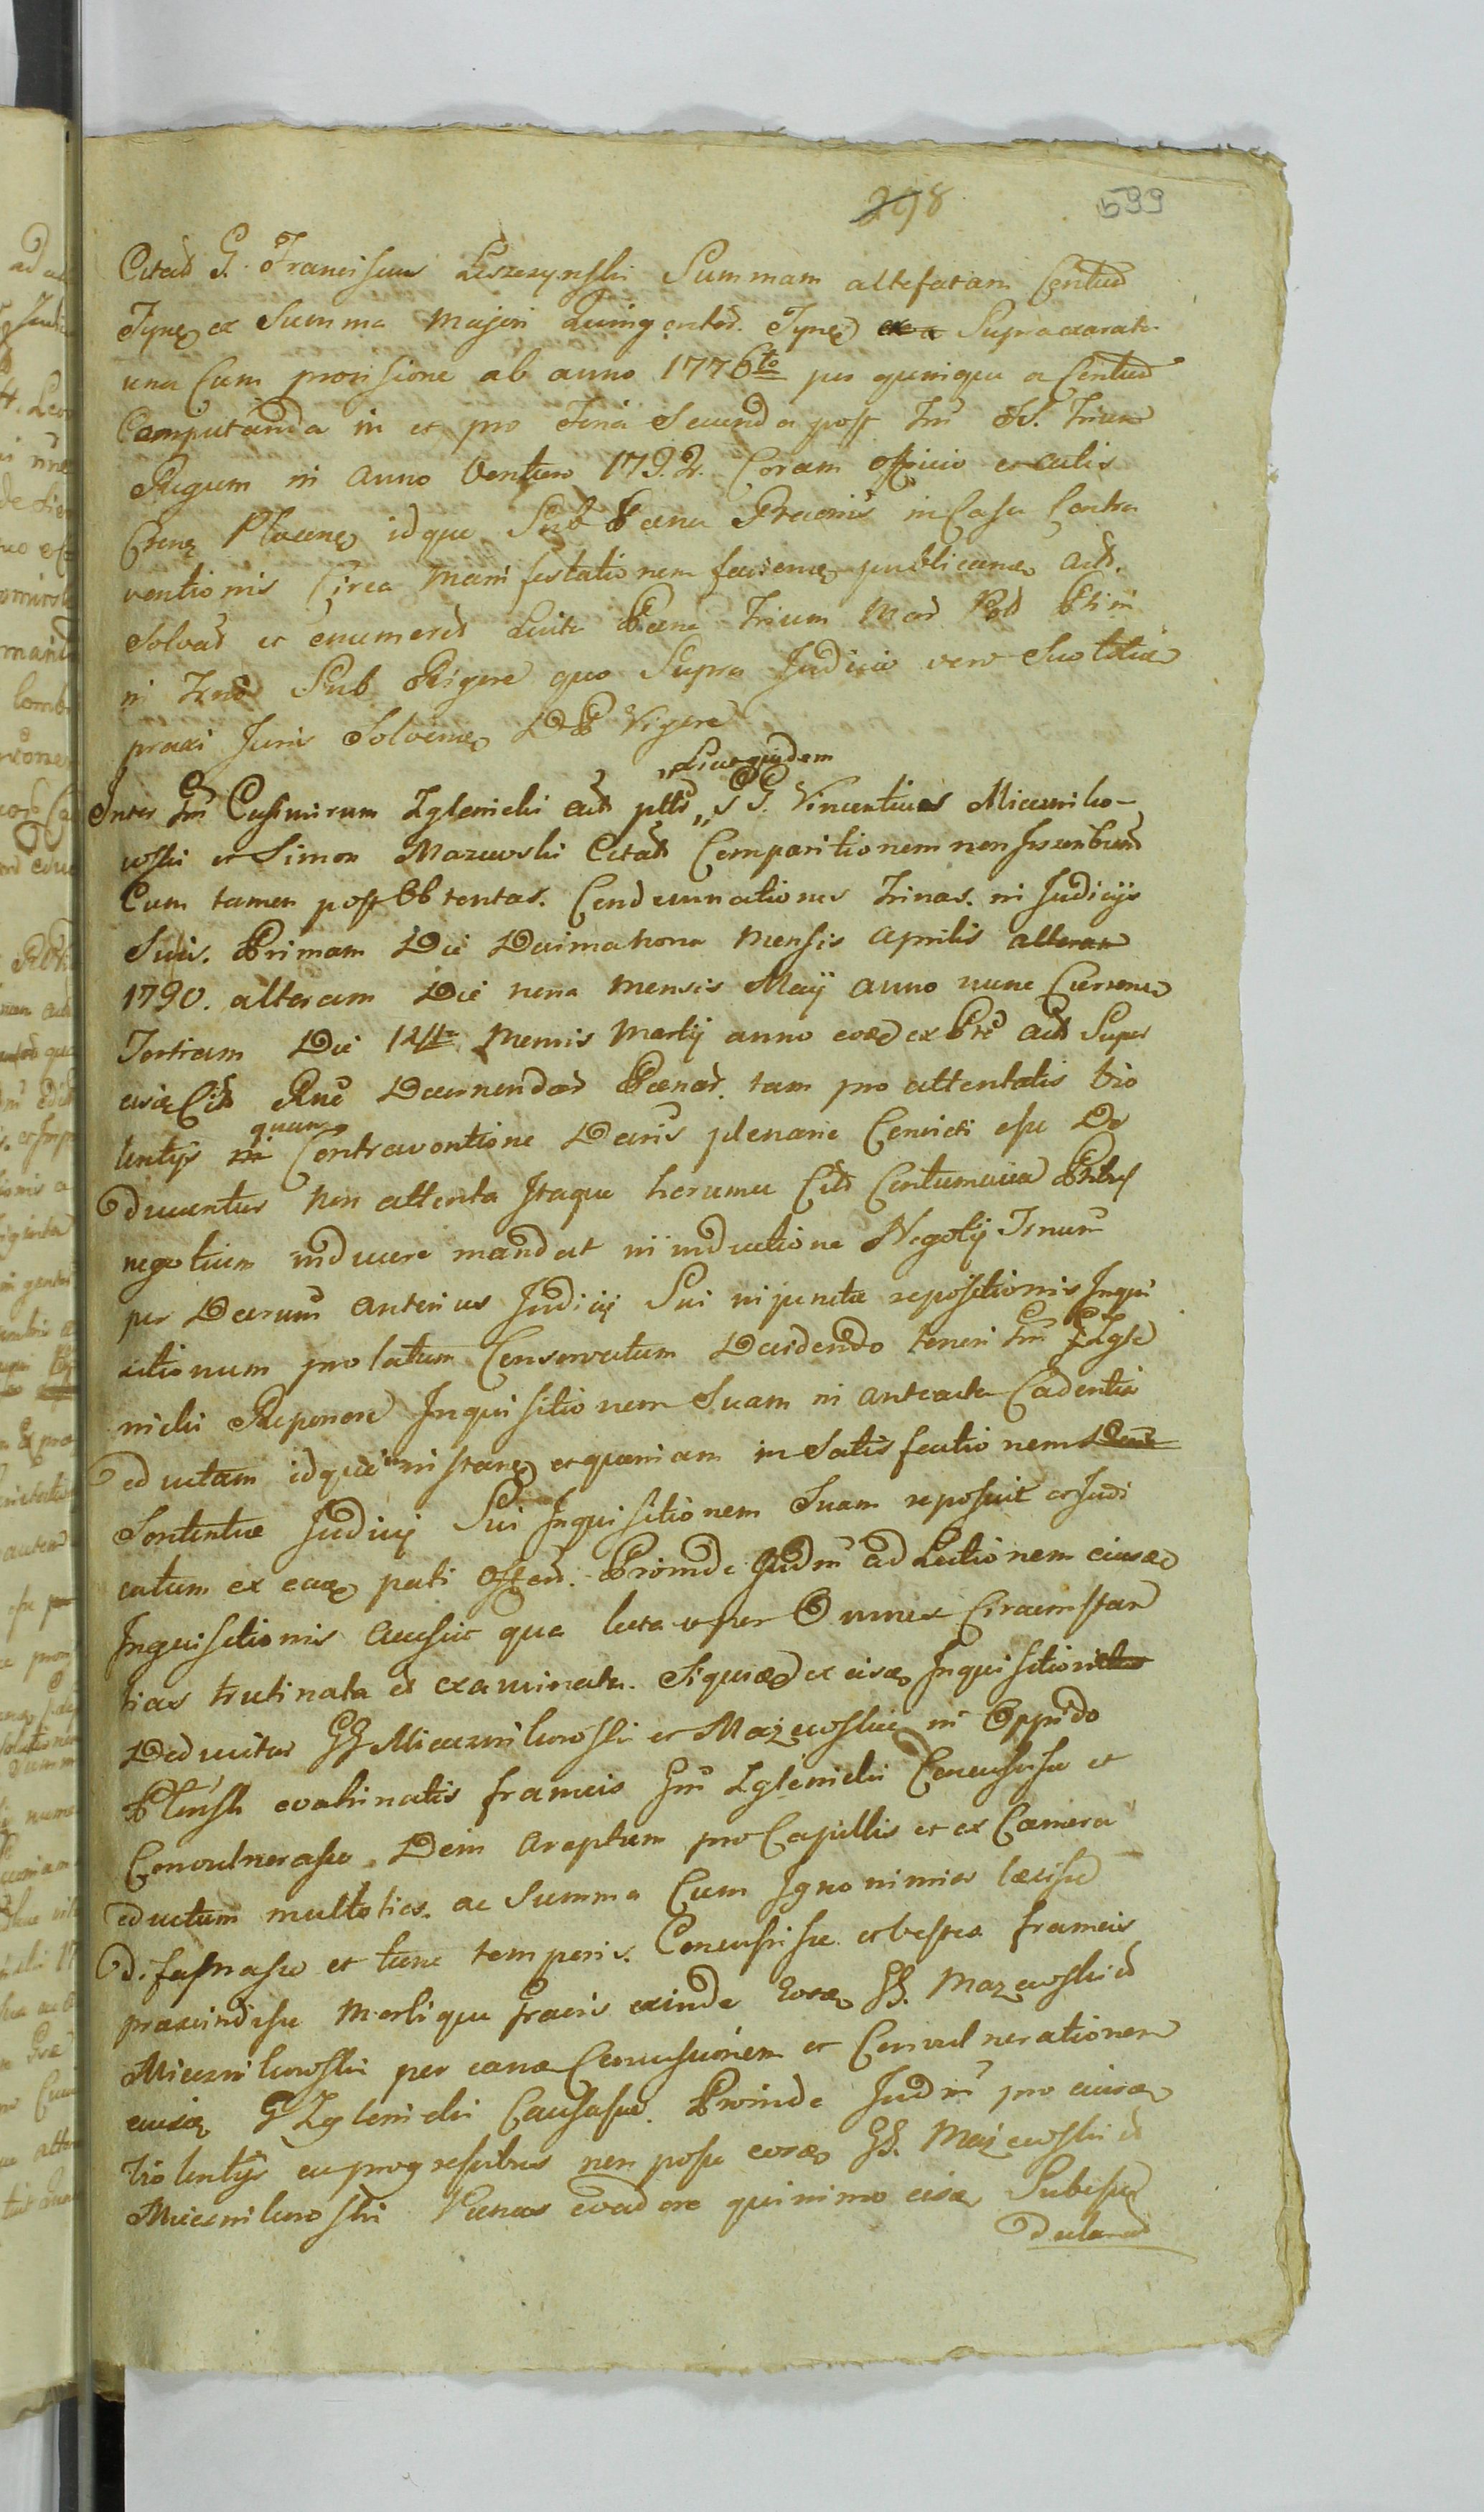 298 599
Citatus G. Franciscus Leszczynski Summam altefatam Centum
Tynf ex Summa Majori Quingentor. Tynf Supraexarata
una Cum provisione ab anno 1776to per quinque a Centum
Computanda in et pro Feria Secunda post Fm SS. Trium
Regum in anno Venturo 1792. Coram officio et actis
Crens Plocens idque Sub Paena Praemis in Casu Contra
ventionis Circa manifestationem faciend publicand act.
Solvat et enumeret Luita Paena Trium Mar Pol Ptim
in Fundo Sub Rigore quo Supra Judicio vero Suo
praxi Juris Solvend DP Vigore
Siquidem
Inter Gm Casimirum Zglenicki act GG. Vincentius Mieczniko-
wski et Simon Mazewski Citat Comparitionem non
Cum tamen post Obtentas. Condemnationes Trinas. in Judicijs
Suis. Primam Die Decima nona Mensis Aprilis alteram
1790. alteram Die nona Mensis Maij anno nunc Currene
Tertiam Die 12ta Mensis Martij anno eod ex Pte act Super
eisd Cit Rne Decernendas Paenas. tam pro attentatis vio
lentijs quam Contraventione Decris plenarie Convicti esse De
ducuntur Non attenta Itaque horumce Cit Contumacia
negotium inducere mandat in inductione Negotij
per Decrum anterius Judicij Sui injuncta repositionis Inqui
sitionum prolatum Conservatum Decidendo teneri Gm Zgle
nicki Reponere Inquisitionem Suam in anteacta Cadentia
eductam idque in instans et quoniam in Satisfactionem
Sententiae Judicij Sui Inquisitionem Suam reposuit et Judi
catum ex eaq pati offert. Proinde Judm ad Lectionem eiusd
Inquisitionis accessit qua lecta et per Omnes Circumstan
tias trutinata et examinata. Siquid ex eisd Inquisitioni
Deducitur GG Miecznikowski et Mazewskie in Oppido
Plonsk evahinatis frameis Gm Zglenicki Concussisse et
Convulnerasse. Dein areptum pro Capillis et ex Camera
eductum multoties. ac Summa Cum Ignonimia laesisse
difamasse et tunc temporis. Concussisse et vestes frameis
praescindisse Mortique fracis exinde Eosd GG. Mazewski et
Mieznikowski per eand Concussionem et Convulnerationem
eiusd G Zglenicki Causasse. Proinde Judm pro eiusd
violentijs ac progressibus non posse eosd GG. Mazewski et
Mieznikowski Paenas evadere quinimo eisd Subesse
Declarat